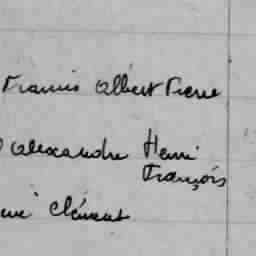 Francis Albert Pierre
Alexandre Henri
François
Clément